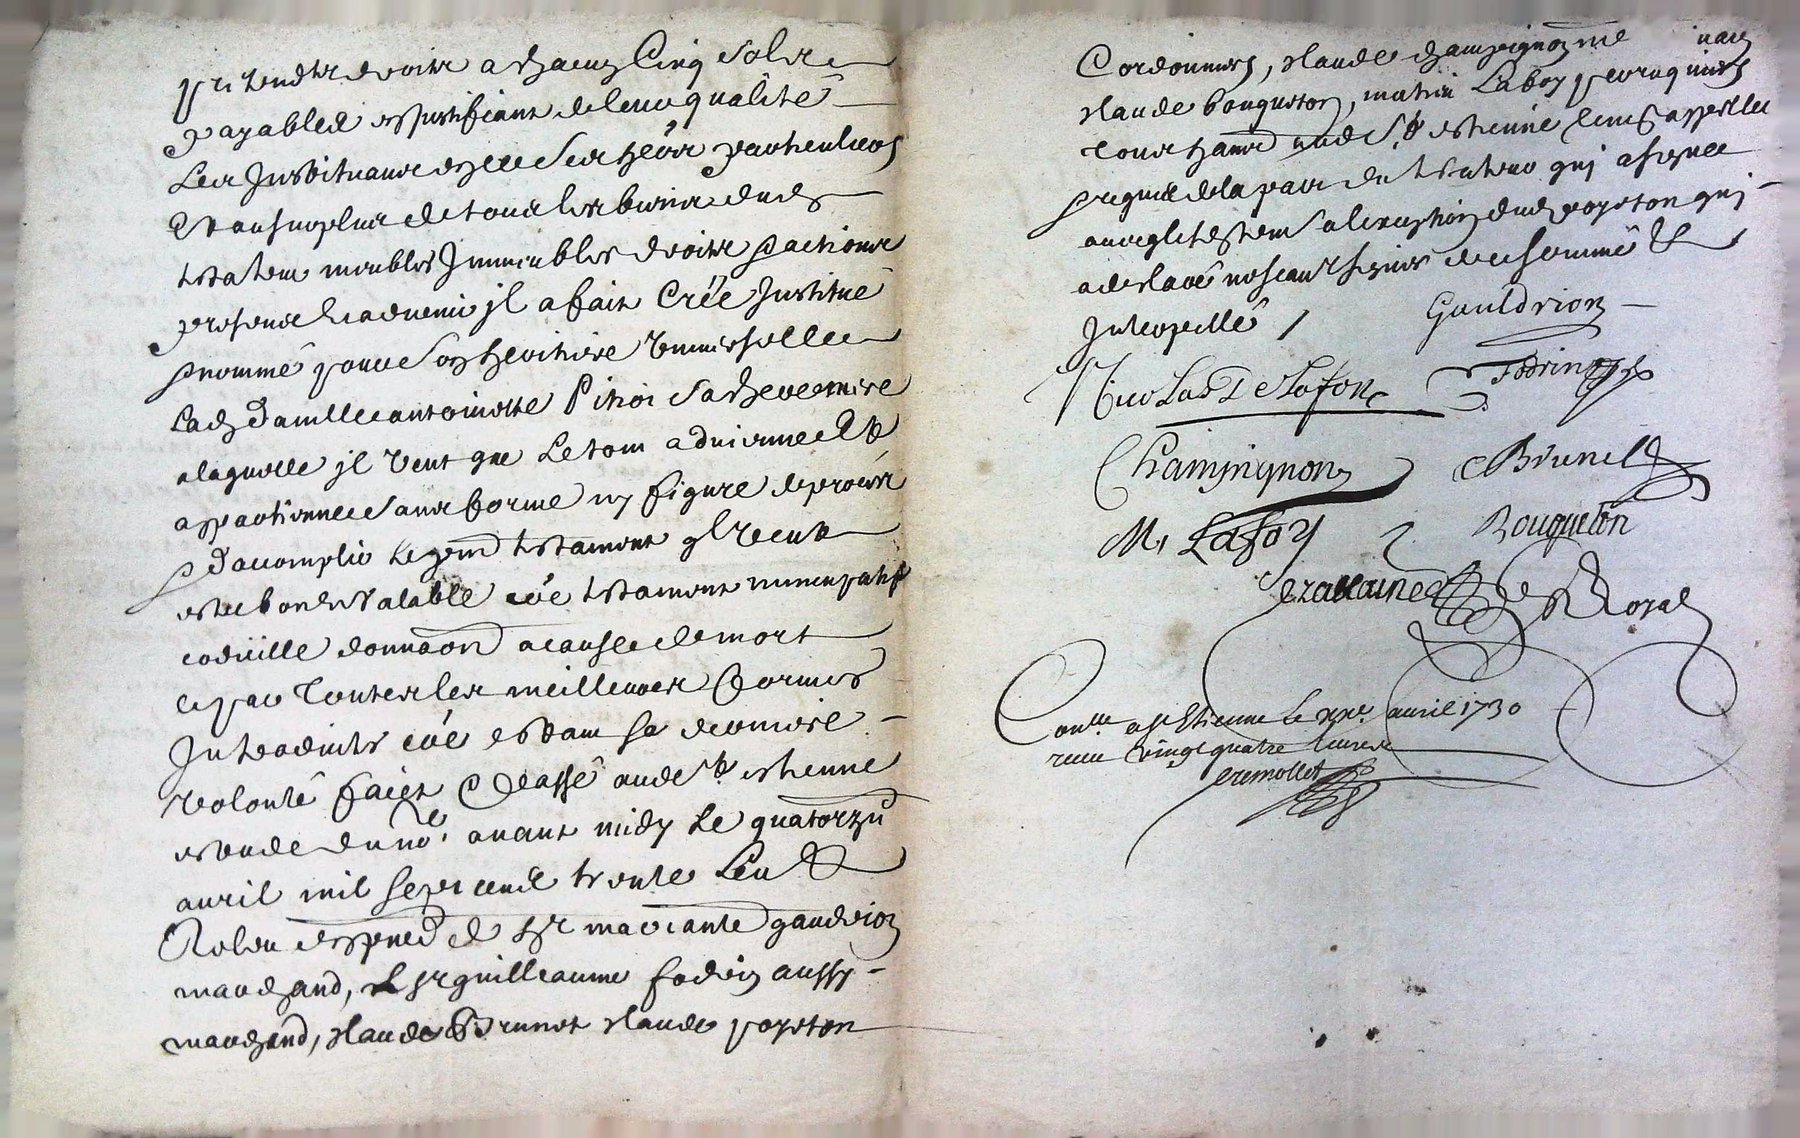 pretendre droits a chacung Cinq solz
payables en justifiant de leur qualité
Les Instituant en ce ses heoirs particuliers
Et au surplus de tous les biens dud
testateur meubles Immeubles droits & actions
presens & advenir jl a fait Créé Institué
& nommé pour son heritiere Universelle
Lad damlle antoinette Pitiot sa chere mere
alaquelle jl veut que Le tout advienne &
appartienne sans forme ny figure de procès
& daccomplir Le pent testament ql veut
estre bon & Valable coe testament nuncupatif
codicille donnaon a cause de mort
& par toutes les meilleures formes
Introduites coe estant sa derniere
volonté fait & passé aud St estienne
estude du nore avant midy Le quatorze
avril mil sept cent trente Leu &
Releu en pnce de sr marcante gaudrion
marchand, sr guilleaume fodrin aussy
marchand, claude Brunet claude poyeton
Cordonniers, claude champignon me
claude bouqueton, mathieu Lafoy perruquiers
tous habitants aud St estienne temoins appellés
& requis de la part du testateur qui a signé
avec les tesmoins a l'exception dud poyeton qui
a declaré ne scavoir signer de ce sommé &
Interpellé /
Gauldrion
Nicolas Delafont
Fodrin
Champignon
Brunet
M. Lafoy
Bouqueton
De Royal
Conlle a St Etienne Le xxe avril 1730
receu vingt quatre livres
cremollet